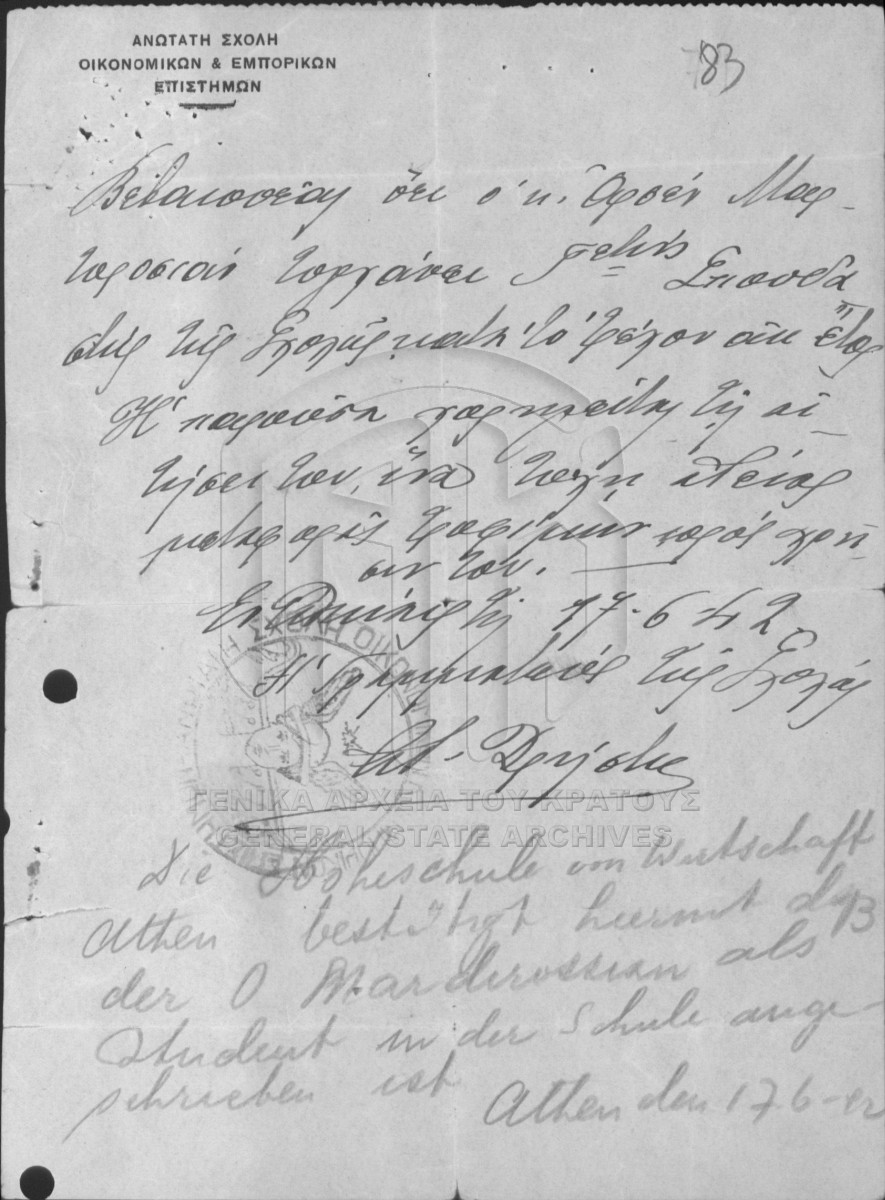 ΑΝΩΤΑΤΗ ΣΧΟΛΗ
ΟΙΚΟΝΟΜΙΚΩΝ & ΕΜΠΟΡΙΚΩΝ
ΕΠΙΣΤΗΜΩΝ
83
Βεβαιοῦται ὅτι ὁ κ. Ἀρσέν Μαρ-
τυροσιάν τυγχάνει Γετής Σπουδα
στής τῆς Σχολῆς κατὰ τὸ τρέχον ἀκ. ἔτος
Ἡ παροῦσα χορηγεῖται τῇ αἰ-
τήσει του, ἵνα τύχῃ ἀδείας
μεταφορᾶς τροφίμων πρὸς χρῆ
σιν του.
Ἐν Ἀθήναις τῇ 17-6-42
Ἡ Γραμματεύς τῆς Σχολῆς
ΓΕΝΙΚΑ ΑΡΧΕΙΑ ΤΟΥ ΚΡΑΤΟΥΣ
GENERAL STATE ARCHIVES
Die Hoheschule von Wirtschaft
Athen bestätigt hiermit daß
der O Marderossian als
Student in der Schule ange-
schrieben ist
Athen den 17 6-42